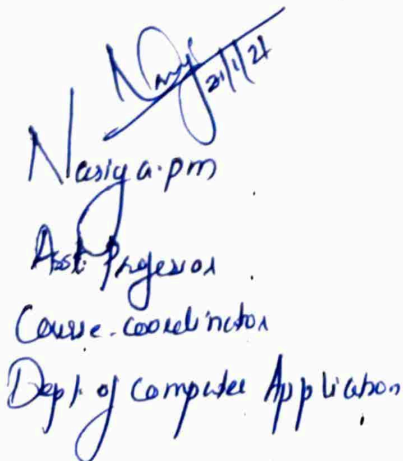 21/1/21
Nasiya.pm
Asst. Professor
Course-coordinator
Dept. of Computer Application